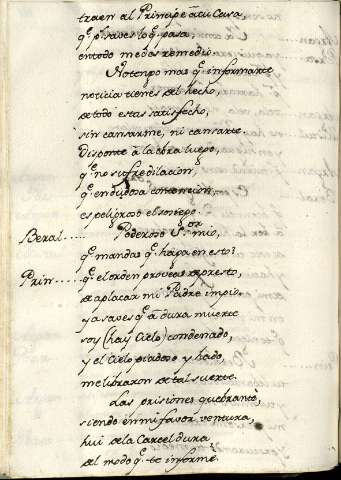 traen al Principe â tu Casa,
q.e p.r saves lo q.e pasa,
en todo me das remedio.
No tengo mas q.e informarte
noticia tienes del hecho,
de todo estas satisfecho,
sin cansarme, ni cansarte.
Disponte â la obra luego,
q.e no sufre dilacion,
q.e en dudosa contencion,
es peligroso el sosiego.
Beral..... Poderoso S.or mio,
q.e mandas q.e haga en esto?
Prin..... q.e el orden proveas de presto,
de aplacar mi Padre impio,
ya saves q.e â dura muerte
soy (hay Cielo) condenado,
y el Cielo piadoso y hado,
me libraron de tal suerte.
Las prisiones quebrantè,
siendo en mi favor ventura,
hui de la Carcel dura,
del modo q.e te informè.